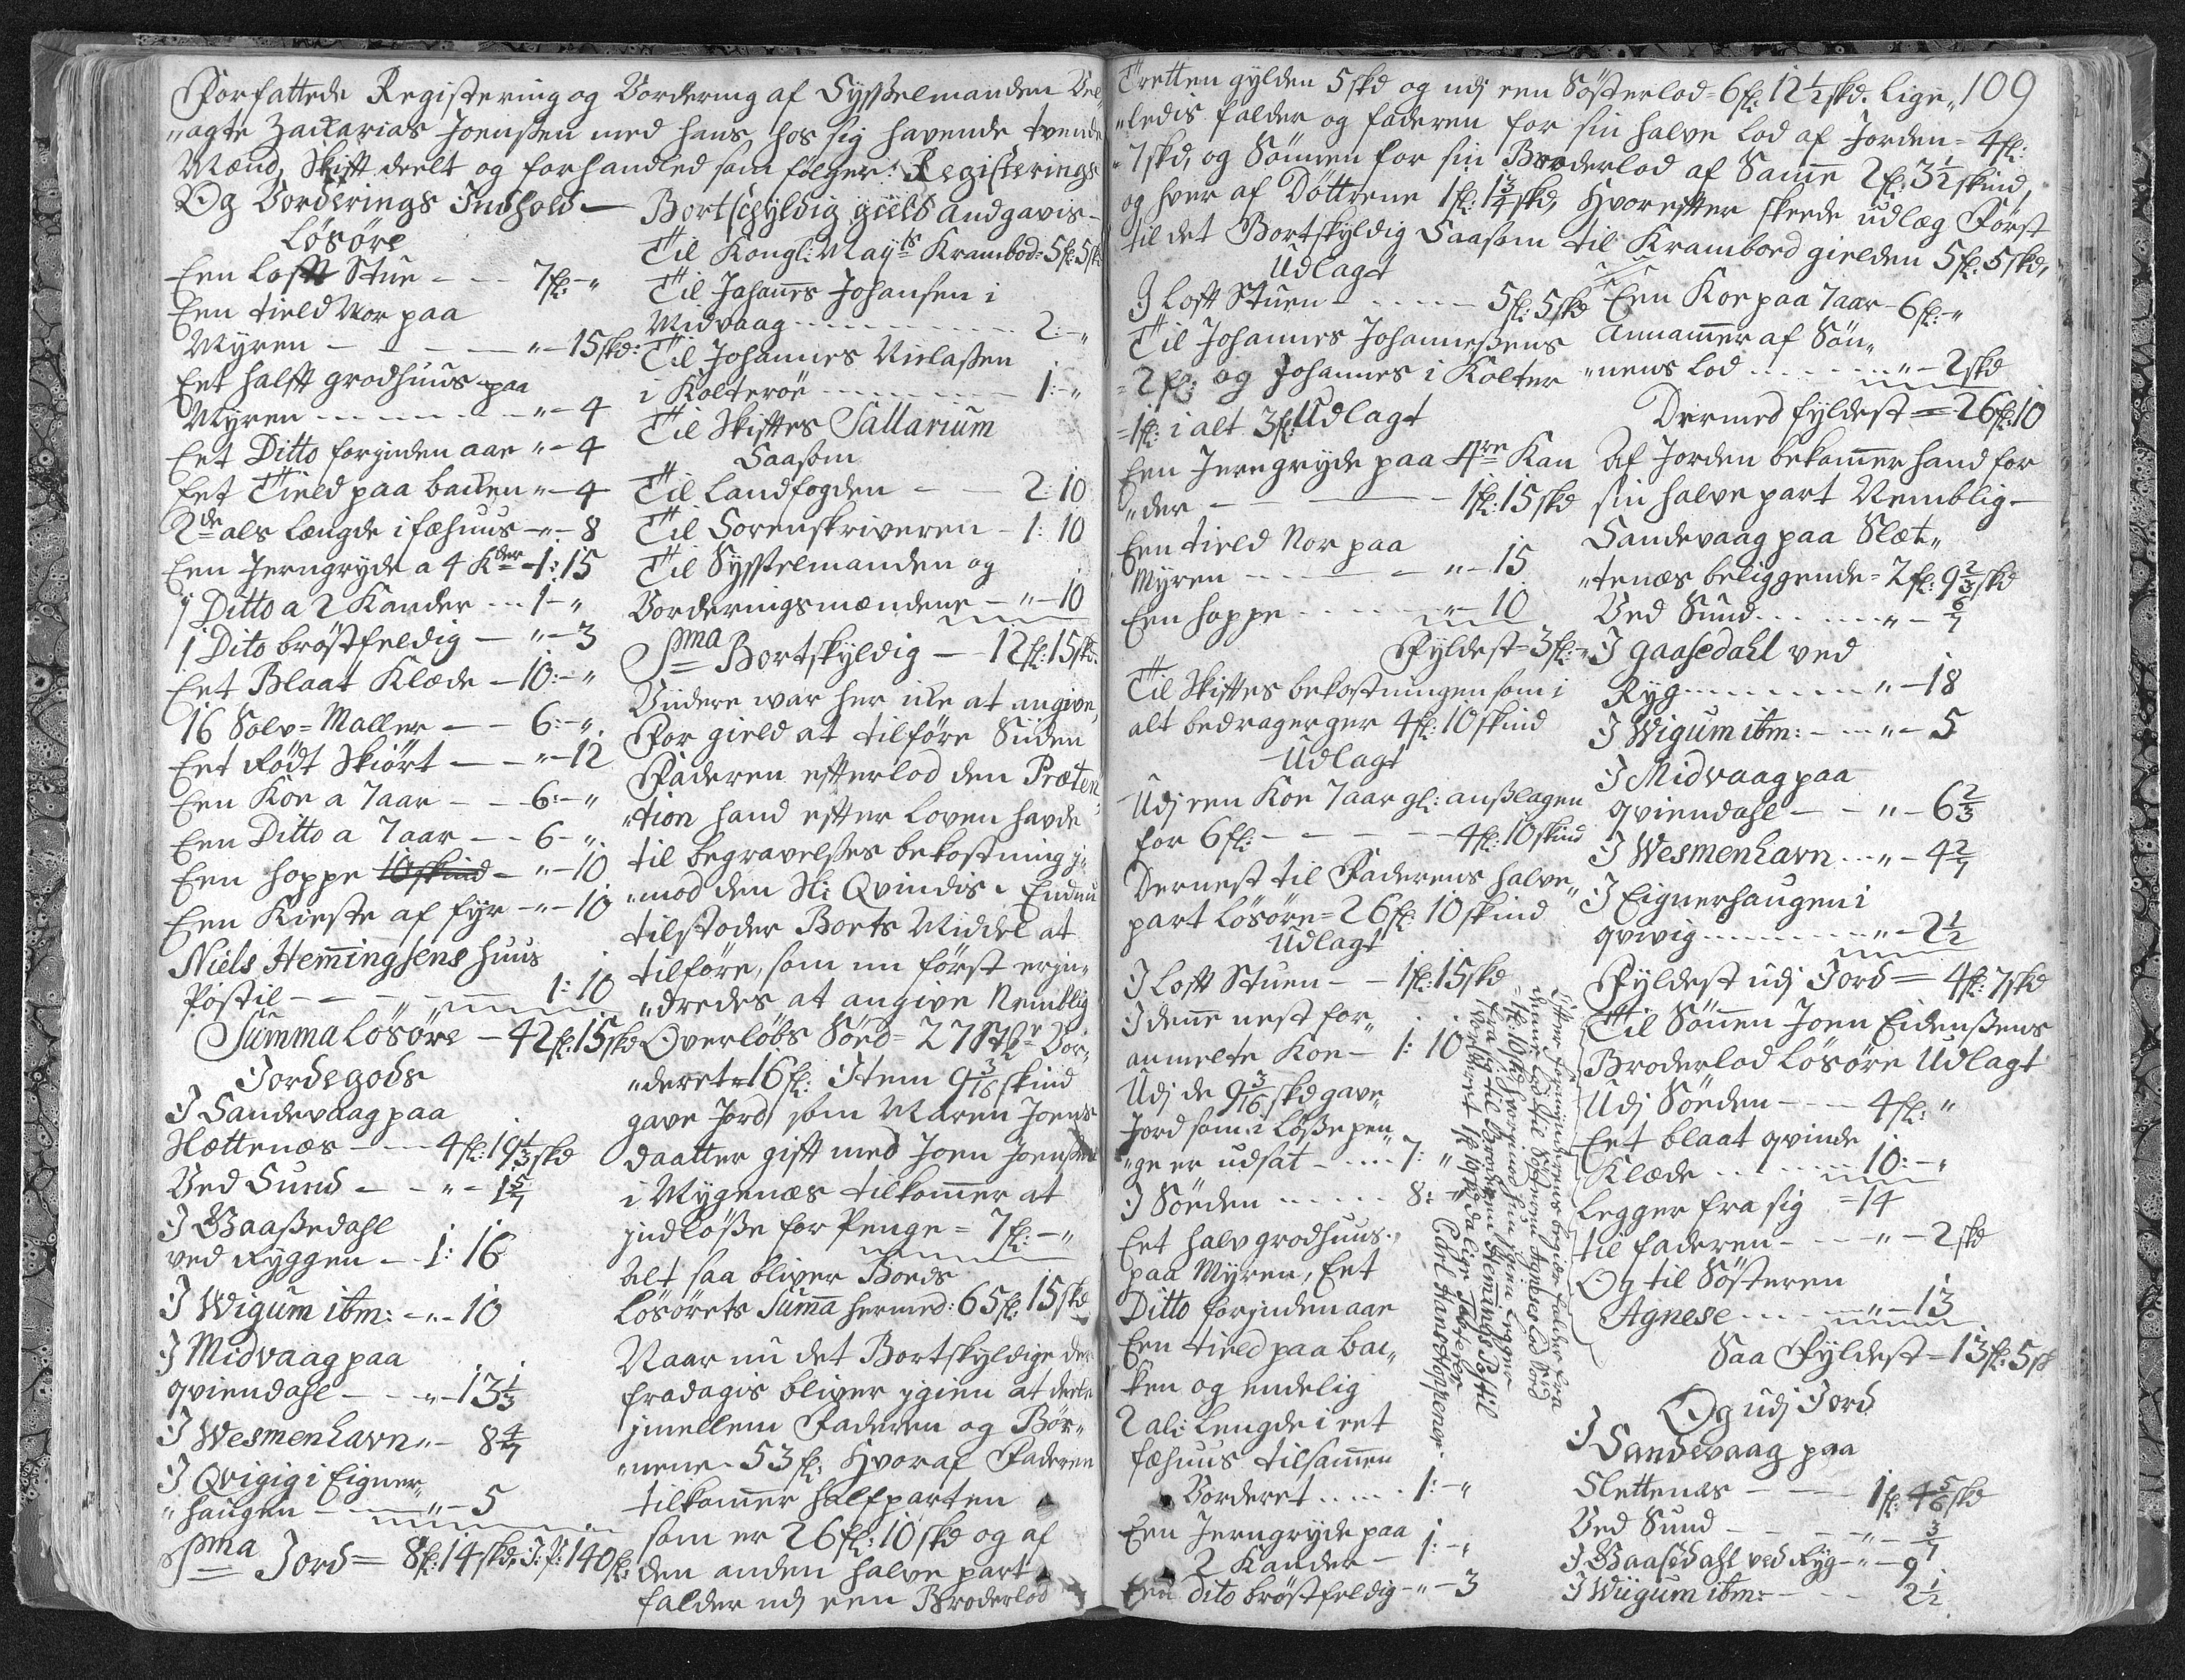 Forfattede Registering og Vordering af Sysselmanden Vel„
„agte Zackarias Joenßen med hans hos sig havende tvende
Mænd, Skift deelt og forhandled som følger: Registerings
Og Vorderings Indhold —
Løsøre
Een loft Stue - - 7fl: - "
Een tield Nor paa
Myren - - - " - 15skd:
Eet halft grodhuus paa
Myren - - - " - 4
Eet Ditto forjnden aar " - 4
Eet Tield paa backen " - 4
2de als længde i fæhuus - " - 8
Een Jerngryde a 4 Kder - 1: 15
1 Ditto a 2 Kander - - - 1 - "
1 Dito brøstfeldig - " - 3
Eet Blaat Klæde - 10: - "
16 Sølv=Maller - - 6: - "
Eet Rødt Skiørt - - " - 12
Een Koe a 7 aar - - 6: - "
Een Ditto a 7 aar - - 6 - "
Een hoppe 10 skind - " - 10
Een Kieste af fyr - " - 10
Niels Hemingsens huus
Postil - - - " 1: 10
Summa Løsøre - 42fl: 15skd
Jordegods
I Sandevaag paa
Slættenæs - - 4fl: 19 1/3 skd
Ved Sund - - " - 1 5/7
I Gaaßedahl
ved Ryggen - - 1: 16
I Wigum ibm: - " - 10
I Midvaag paa
qviendahl - - " - 13 1/3
I Wesmenhavn " - 8 4/7
I Qvigig i Eigner„
„haugen - - " - 5
Sma Jord = 8fl: 14skd, J: P: 140fl:
Bortschyldig gield andgavis -
Til Kongl: Mayts Krambod = 5fl: 5skd
Til Johanes Johansen i
Midvaag - - - 2: - "
Til Johannes Nielaßen
i Kolterøe - - - 1: - "
Til Skiftes Sallarium
Saasom
Til Landfogden - - 2: 10
Til Sorenskriveren - 1: 10
Til Sysselmanden og
Vorderingsmændene - " - 10
Sma Bortskyldig - 12fl: 15skd.
Viidere war her icke at angive,
For gield at tilføre Siiden
Faderen efterlod den Præten„
„tion hand efter Loven havde
til begravelsses bekostning j„
„mod den Sl: Qvindis. Endnu
tilstoder Boets Middel at
tilføre, som nu først erjn„
„dredes at angive Nemblig
Overløbs Søed = 27 Vor„
„deret = 16fl: Item 9 3/16 skind
gave Jord, som Maren Joens
daatter gift med Joen Joenßen
i Mygenæs tilkomer at
jndløße for Penge = 7fl: - "
Alt saa bliver Boeds
Løsørets Suma hermed: 65fl: 15skd
Naar nu det Bortskyldige der
fradagis bliver jgien at deele
jmellem Faderen og Bør„
„nene = 53fl: Hvoraf Faderen
tilkomer halfparten
som er 26fl: 10skd og af
den anden halve part
falder udj een Broderlod
109
Tretten gylden 5skd og udj een Søsterlod = 6fl: 12 1/2 skd. Lige„
„ledis falder og faderen for sin halve Lod af Jorden = 4fl:
„7skd, og Sønnen for sin Broderlod af Same 2fl: 3 1/2 skind,
og hver af Døttrene 1fl: 1 3/4 skd, Hvorefter skeede udlæg Først
til det Bortskyldig Saasom til Krambord gielden 5fl: 5skd,
Udlagt
I loft Stuen - - - 5fl: 5skd
Til Johannes Johanneßens
= 2fl: og Johannes i Kolter
= 1fl: i alt 3fl: Udlagt
Een Jerngryde paa 4re Kan
„der - - - 1fl: 15skd
Een tield Nor paa
Myren - - - " - 15
Een hoppe - - - " - 10
Fyldest = 3fl: - "
Til Skiftes bekostningen som i
alt bedragerger 4fl: 10 skind
Udlagt
Udj een Koe 7 aar gl: anßlagen
for 6fl: - - - 4fl: 10 skind
Dernest til Faderens halve„
part Løsøre = 26fl: 10 skind
Udlagt
I loft Stuen - - 1fl: 15skd
I dene nest for„
anmelte Koe - 1: 10
Udj de 9 3/16 skd gave„
Jord som i Løße pen„
„ge er udsat - - - 7: "
I Søeden - - - 8: "
Eet halv grodhuus „
paa Myren, Eet
Ditto forjnden aar
Een tield paa bac„
ken og endelig
2 al: Lengde i eet
fæhuus tilsamen
Vorderet - - - 1: - "
Een Jerngryde paa
2 Kander - 1: - "
Een Dito brøstfeldig - " - 3
Efter formynderens begiær falder fra
denne Lod til Søsteren Agneses Lod Sød
= 1fl: 10 skd hvorjmod hun jgien legger
fra sig til Broderen Hemings Postil
Vorderet 1fl: 10skd alige
Carl Hans Høppener
Een Koe paa 7 aar - 6fl: - "
Annamer af Søn„
„nens Lod - - - " - 2skd
Dermed fyldest = 26fl: 10
Af Jorden bekomer hand for
sin halve part Nemblig -
Sandevaag paa Slæt„
„tenæs beliggende = 2fl: 9 2/3 skd
Ved Sund - - - " - 6/7
I gaasedahl ved
Ryg - - - " - 18
I Wigum ibm: - - " - 5
I Midvaag paa
qviendahl - - " - 6 2/3
I Wesmenhavn - - " - 4 2/7
I Eignerhaugen i
qvivig - - - " - 2 1/2
Fyldest udj Jord = 4fl: 7skd
Til Sønen Joen Eidenßens
Broderlod Løsøre Udlagt
Udj Søeden - - - 4fl: "
Eet blaat qvinde
Klæde - - - 10: - "
Legger fra sig = 14
til faderen - - - " - 2skd
Og til Søsteren
Agnese - - - " - 13
Saa Fyldest - 13fl: 5sk
Og udj Jord
I Sandevaag paa
Slettenæs - - - 1fl: 4 5/6 skd
Ved Sund - - - " - 3/7
I Gaasedahl ved Ryg - " - 9
I Wiigum ibm: - - - 2 1/2